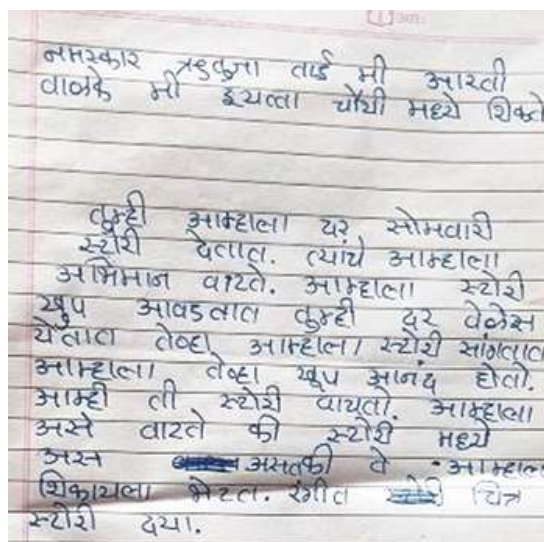 नमस्कार ऋतुजा ताई मी आरती
वाळके मी इयत्ता चौथी मध्ये शिकते
तुम्ही आम्हाला दर सोमवारी
स्टोरी देतात. त्यांचे आम्हाला
अभिमान वाटते. आम्हाला स्टोरी
खुप आवडतात तुम्ही दर वेळेस
येतात तेव्हा आम्हाला स्टोरी सांगतात
आम्हाला तेव्हा खुप आनंद होतो.
आम्ही ती स्टोरी वाचतो. आम्हाला
असे वाटते की स्टोरी मध्ये
अस असतकी ते आम्हाल
शिकायला भेटत. रंगीत चित्र
स्टोरी दया.